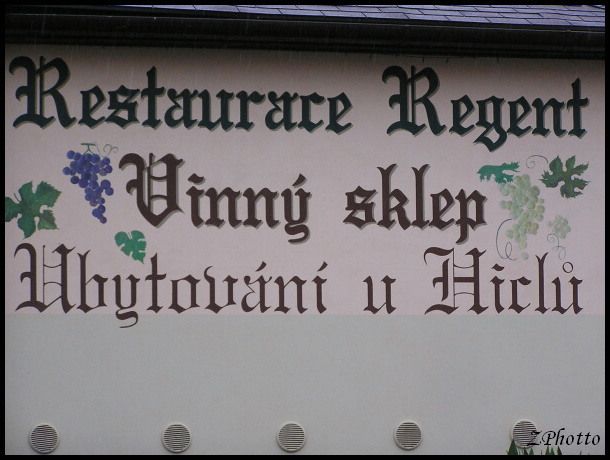 Restaurace Regent
Vinný sklep
Ubytování u Hiclů
ZPhotto